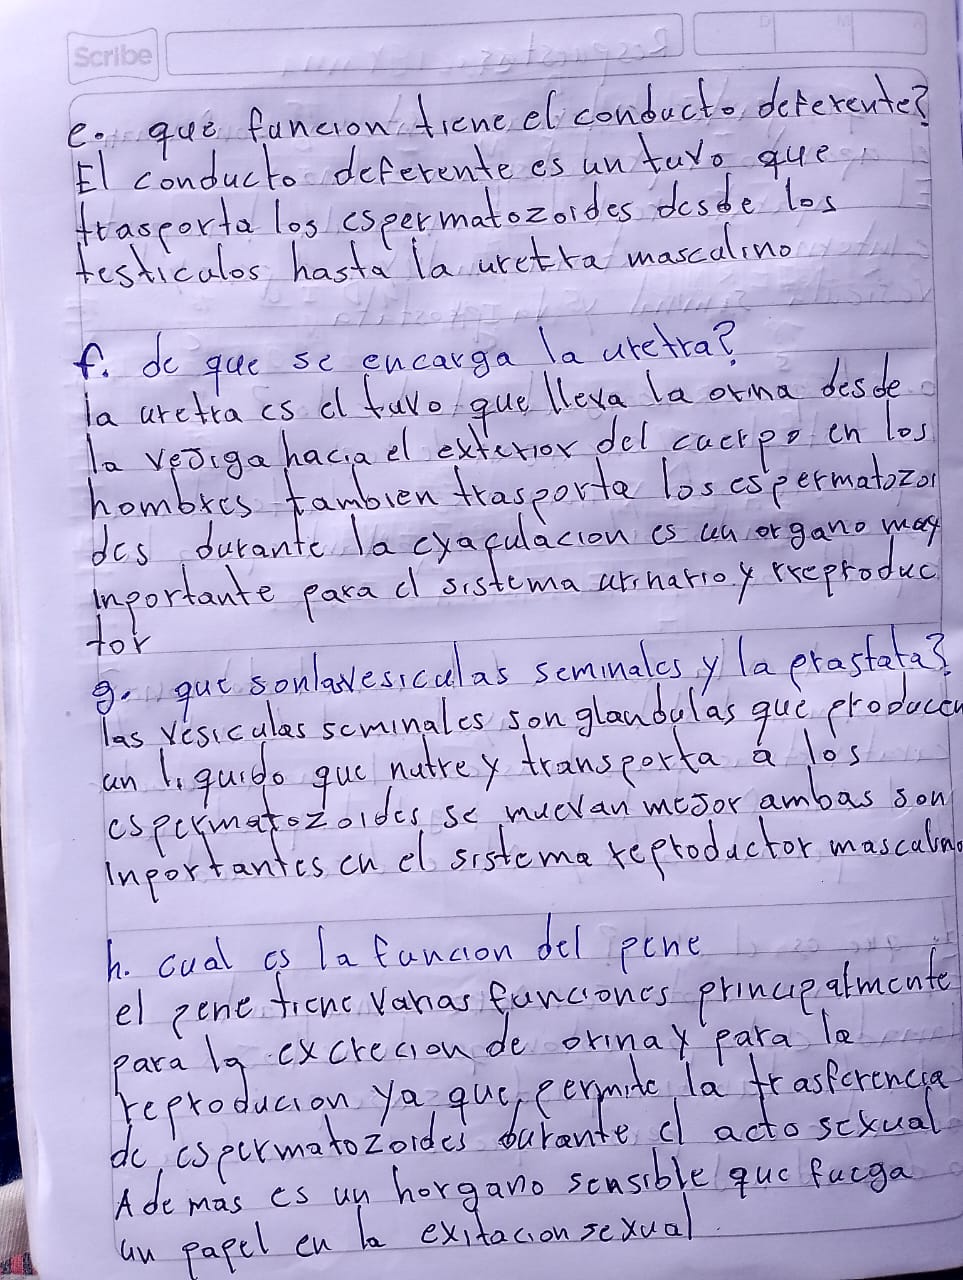 Scribe
e. que funcion tiene el conducto deferente?
El conducto deferente es un tuvo que
trasporta los espermatozoides desde los
testiculos hasta la uretra masculino
f. de que se encarga la uretra?
la uretra es el tuvo que lleva la orina desde
la vejiga hacia el exterior del cuerpo en los
hombres tambien trasporta los espermatozoi
des durante la eyaculacion es un organo muy
inportante para el sistema urinario y rreproduc
tor
g. que son las vesiculas seminales y la prastata?
las vesiculas seminales son glandulas que producen
un liquido que nutre y transporta a los
espermatozoides se muevan mejor ambas son
inportantes en el sistema reproductor masculino
h. cual es la funcion del pene
el pene tiene varias funciones principalmente
para la excrecion de orina y para la
reproducion ya que permite la trasferencia
de espermatozoides durante el acto sexual
Ademas es un horgano sensible que fuega
un papel en la exitacion sexual